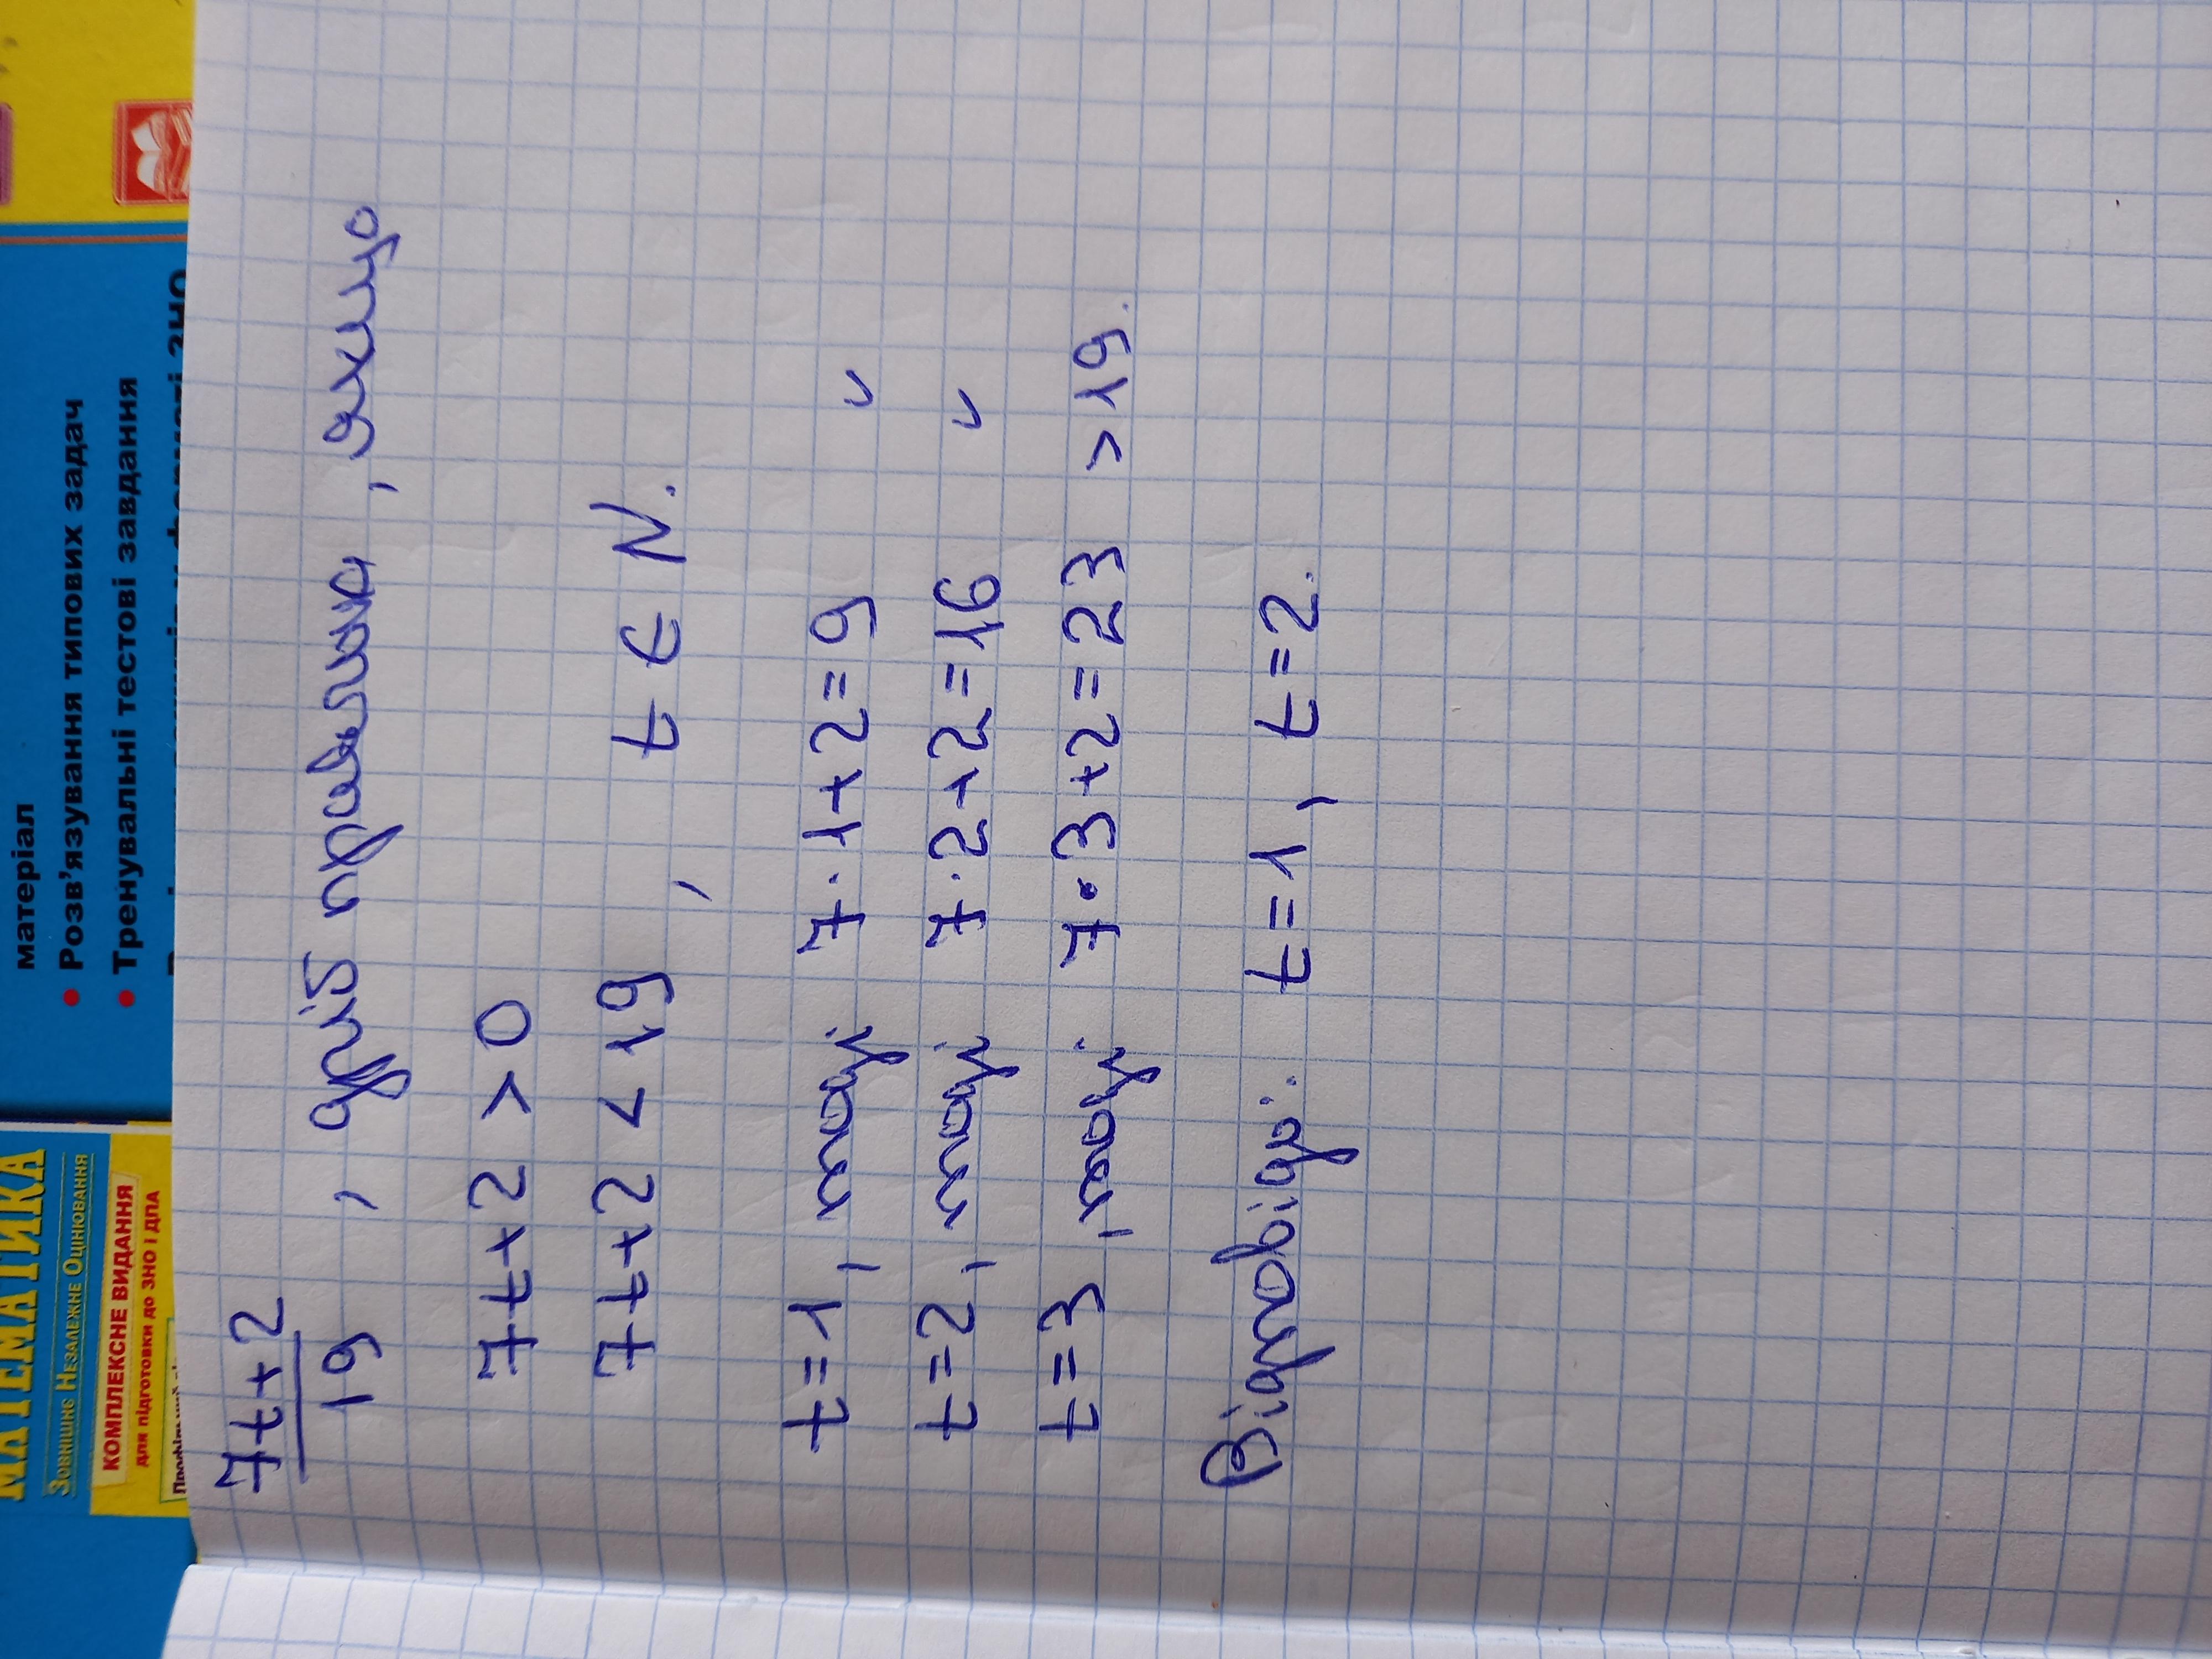 матеріал
• Розв'язування типових задач
• Тренувальні тестові завдання
МАТЕМАТИКА
Зовнішнє Незалежне Оцінювання
КОМПЛЕКСНЕ ВИДАННЯ
для підготовки до ЗНО і ДПА
7t+2
19
, дріб правильна, якщо
7t+2 > 0
7t+2 < 19 , t ∈ N.
t=1, тоді 7·1+2=9 ᵛ
t=2, тоді 7·2+2=16 ᵛ
t=3, тоді 7·3+2=23 >19.
Відповідь: t=1, t=2.